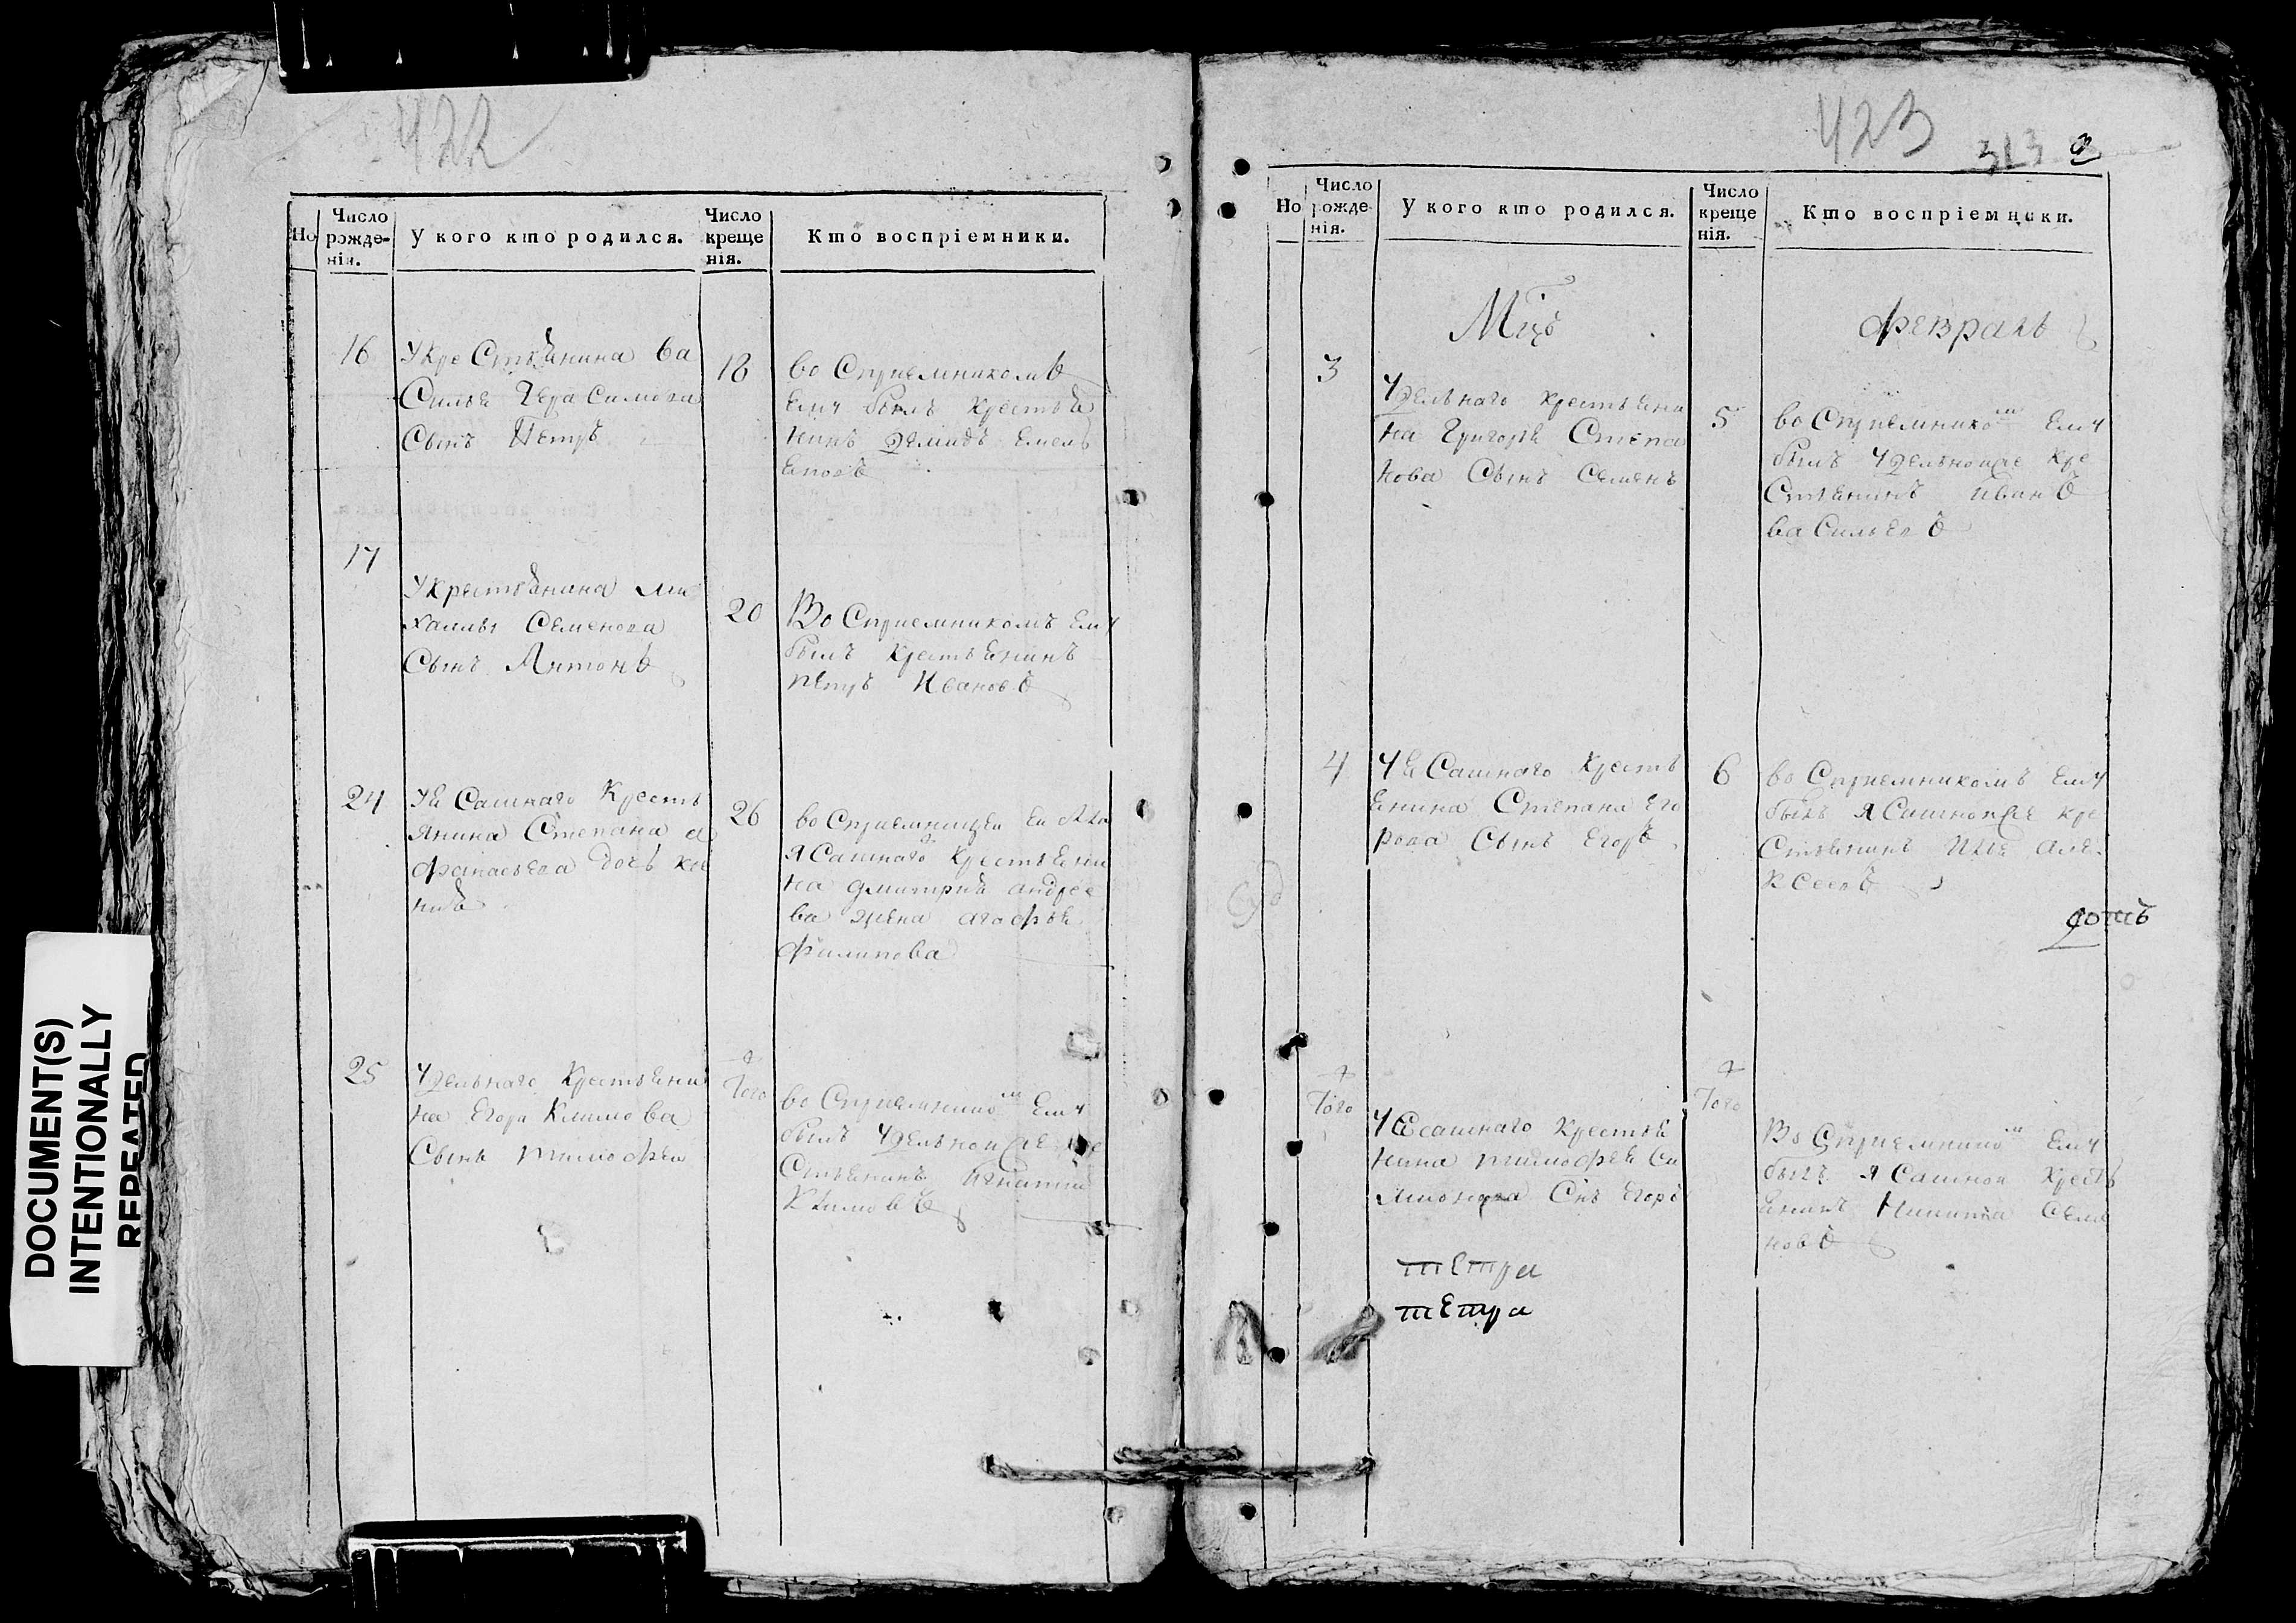 422
Но
Число рожде-нія.
У кого кто родился.
Число креще нія.
Кто воспріемники.
16
У кре Стьянина Ва
Силья Герасимова
Сынъ Петръ
18
во Сприемникомъ
Ему былъ крестья
нинъ Демидъ Емель
еновъ
17
У крестьянина Ми
хаилы Семенова
Сынъ Антонъ
20
Во Сприемникомъ Ему
былъ Крестьенинъ
петръ Ивановъ
24
У Есашнаго Кресть
янина Степана а
фанасьева дочь Ксе
ния
26
во Сприемницеи Еи
ЯСашнаго Крестьени
на дмитрия андрее
ва жена агафья
Филипова
25
Удельнаго Крестьени
на Егора Климова
Сынъ тимофеи
того
во Сприемнико м Ему
былъ Удельнои
Стьенинъ Игнатии
Климовъ
DOCUMENT(S)
INTENTIONALLY
REPEATED
423
313
Но
Число рожде нія.
У кого кто родился.
Число креще нія.
Кто воспріемники.
Мцъ
февраль
3
Удельнаго крестьени
на Григорья Степа
нова Сынъ Семенъ
5
во Сприемнико м Ему
былъ Удельнои же кре
Стьенинъ Иванъ
ваСильевъ
4
У ЕСашнаго Кресть
енина Степана Его
рова Сынъ Егоръ
6
во Сприемникомъ Ему
былъ ЯСашнои же кре
Стьенинъ Илья але
ксеевъ
того
У Есашнаго Крестье
нина тимофея Си
Снъ Егоръ
того
Во Сприемнико м Ему
былъ ЯСашнои Кресть
енинъ Никита Семе
новъ